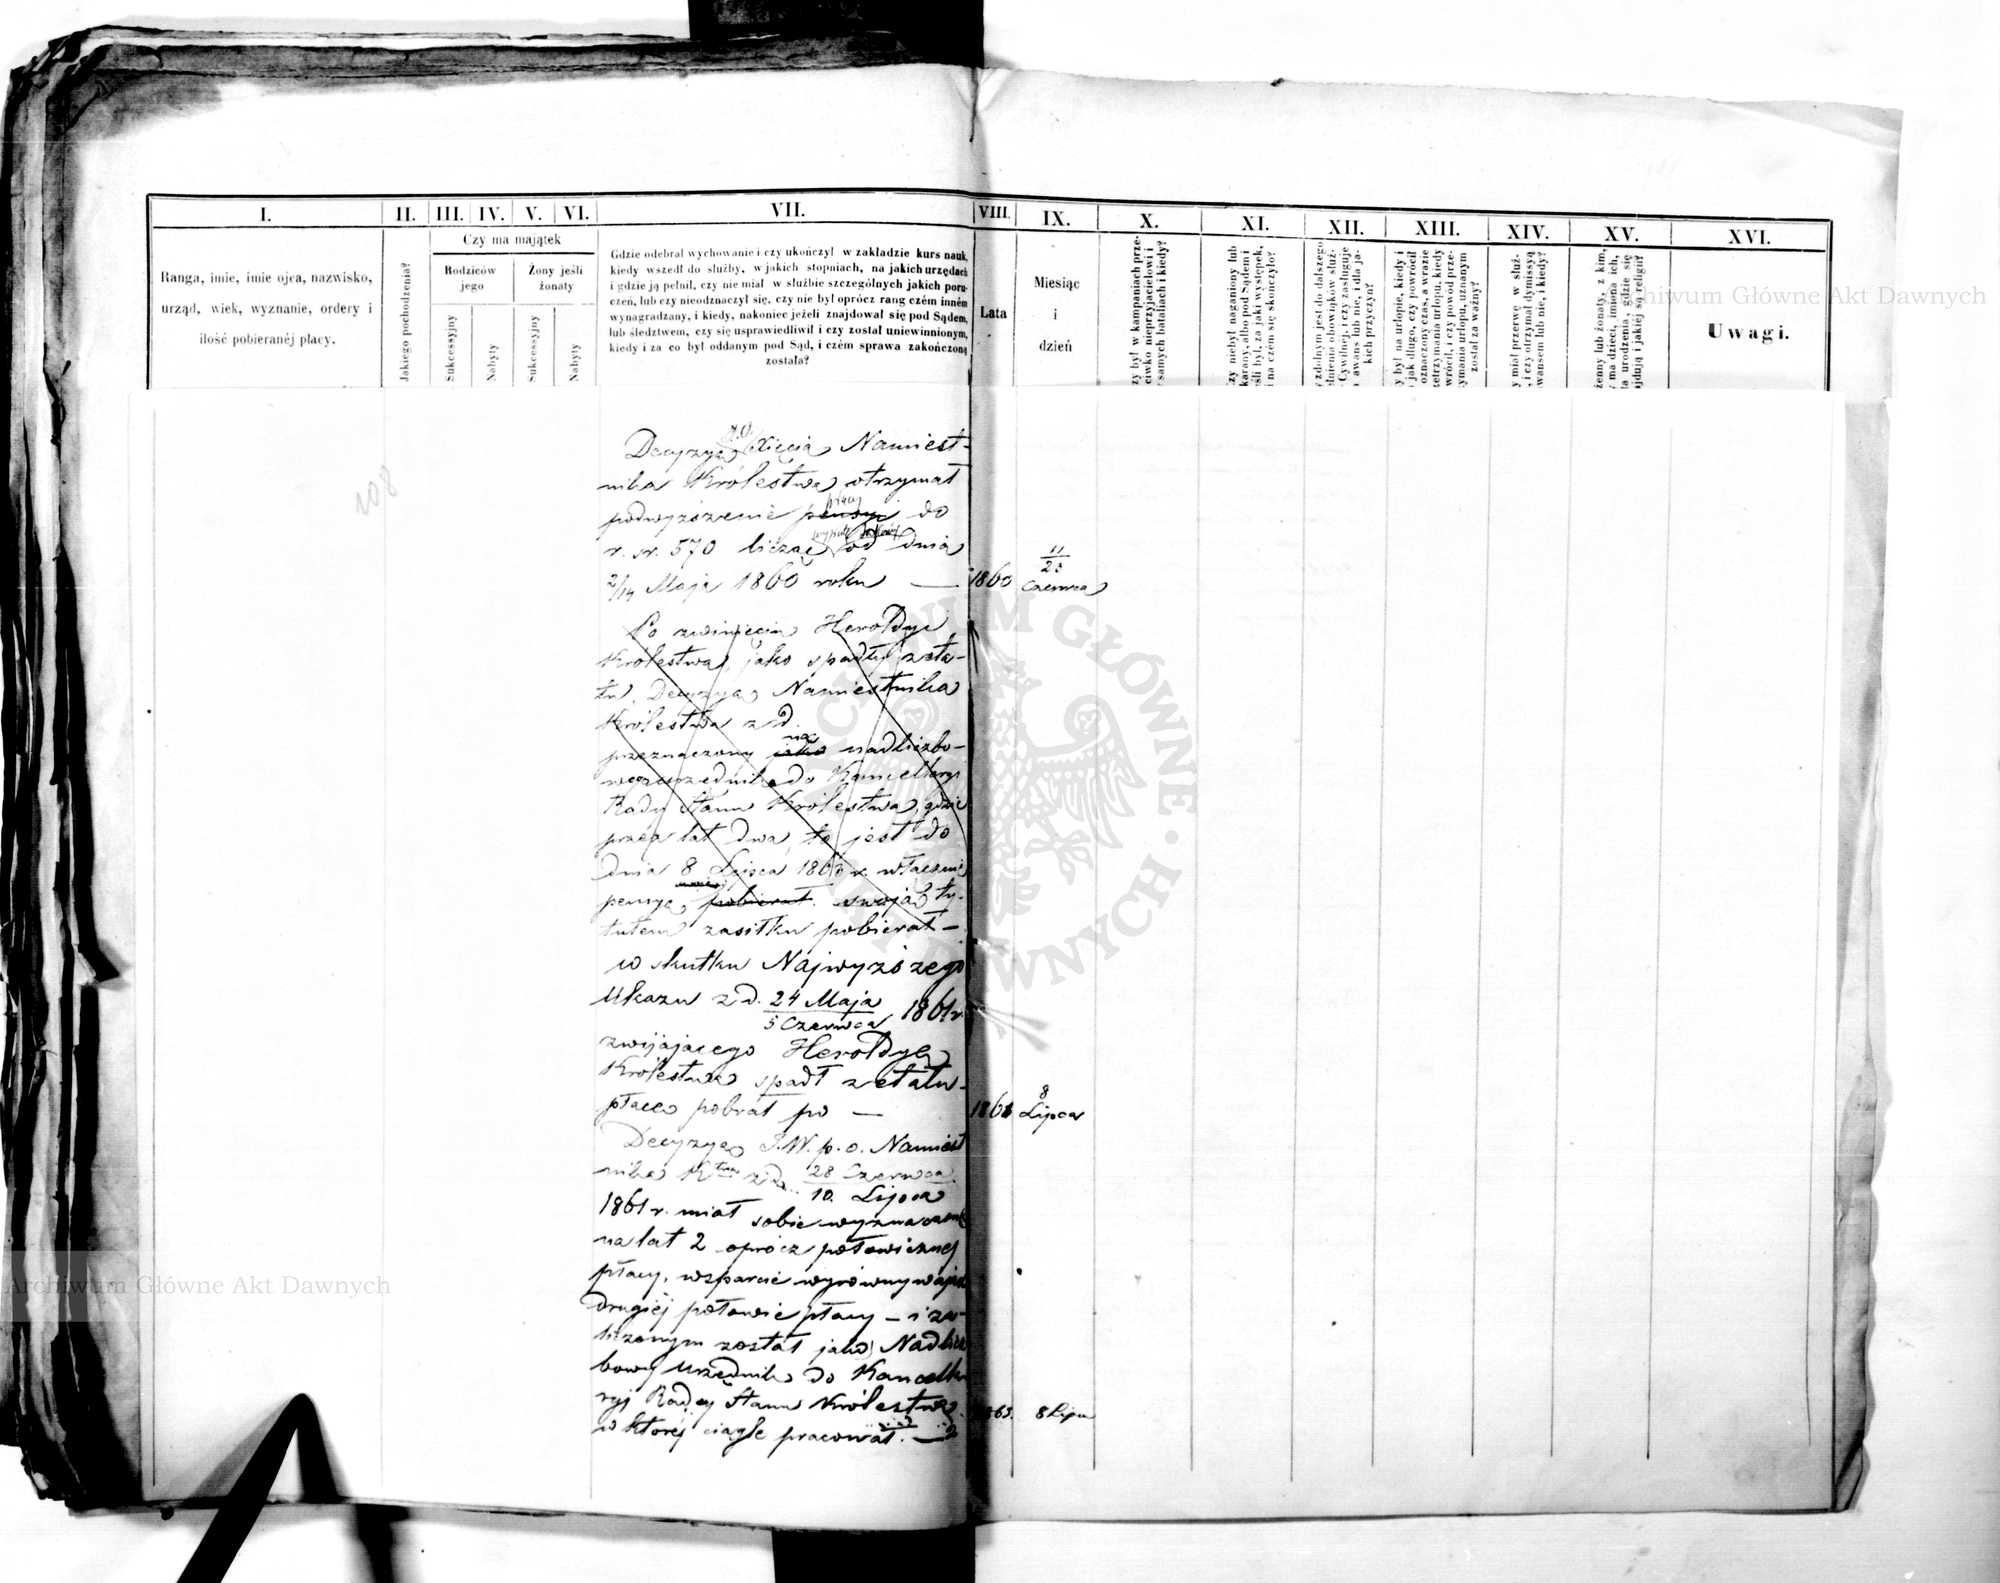 I. II. III. IV. V. VI. VII. VIII. IX. X. XI. XII. XIII. XIV. XV. XVI.
Ranga, imie, imie ojca, nazwisko,
urząd, wiek, wyznanie, ordery i
ilość pobieranéj płacy.
Jakiego pochodzenia?
Czy ma majątek
Rodziców
jego
Żony jeśli
żonaty
Sukcessyjny
Nabyty
Sukcessyjny
Nabyty
Gdzie odebrał wychowanie i czy ukończył w zakładzie kurs nauk,
kiedy wszedł do służby, w jakich stopniach, na jakich urzędach
i gdzie ją pełnił, czy nie miał w służbie szczególnych jakich poru-
czeń, lub czy nieodznaczył się, czy nie był oprócz rang czém inném
wynagradzany, i kiedy, nakoniec jeżeli znajdował się pod Sądem,
lub śledztwem, czy się usprawiedliwił i czy został uniewinnionym,
kiedy i za co był oddanym pod Sąd, i czém sprawa zakończoną
została?
Lata
Miesiąc
i
dzień
zy był w kampaniach prze-
ciwko nieprzyjacielowi i
samych batalijach i kiedy?
Czy niebył naganiony lub
karany, albo pod Sądem i
eśli był, za jaki występek,
i na czém się skończyło?
zdolnym jest do dalszego
ełnienia obowiązków służ-
Cywilnéj, i czy zasługuje
a awans lub nie, i dla ja-
kich przyczyn?
y był na urlopie, kiedy i
jak długo, czy powrócił
oznaczony czas, a w razie
zetrzymania urlopu, kiedy
wrócił, i czy powód prze-
zymania urlopu, uznanym
został za ważny?
y miał przerwę w służ-
, i czy otrzymał dymissyą
wansem lub nie, i kiedy?
żenny lub żonaty, z kim,
y ma dzieci, imiona ich,
ta urodzenia, gdzie się
jdują i jakiéj są religii?
Uwagi.
108
Decyzyą Xięcia Namiest-
nika Królestwa otrzymał
płacy
podwyższenie pensyi do
r. sr. 570 licząc od dnia
2/14 Maja 1860 roku — 1860 11/23 Czerwca
Po zwinięciu Heroldyi
Królestwa, jako spadły z eta-
tu, Decyzyą Namiestnika
Królestwa z d.
na
przeznaczony jako nadliczbo-
wego urzędnika do Kancellaryi
Rady Stanu Królestwa, gdzie
przez lat dwa, to jest do
dnia 8 Lipca 1863 r. włącznie
pensyę pobierał swoją ty-
tułem zasiłku pobierał —
w skutku Najwyższego
Ukazu z d. 24 Maja/5 Czerwca 1861 r.
zwijającego Heroldyę
Królestwa spadł z etatu -
płacę pobrał po — 1861 8 Lipca
Decyzyą J.W. p. o. Namiest
nika Kctwa z d. 28 Czerwca/10 Lipca
1861 r. miał sobie wyznaczone
na lat 2 oprócz połowicznej
płacy, wsparcie wyrównywające
drugiéj połowie płacy — i za-
liczonym został jako Nadlicz
bowy Urzędnik do Kancella
ryi Rady Stanu Królestwa
w któréj ciągle pracował. — 1863. 8 Lipca
Archiwum Główne Akt Dawnych
ARCHIWUM GŁÓWNE AKT DAWNYCH
Archiwum Główne Akt Dawnych